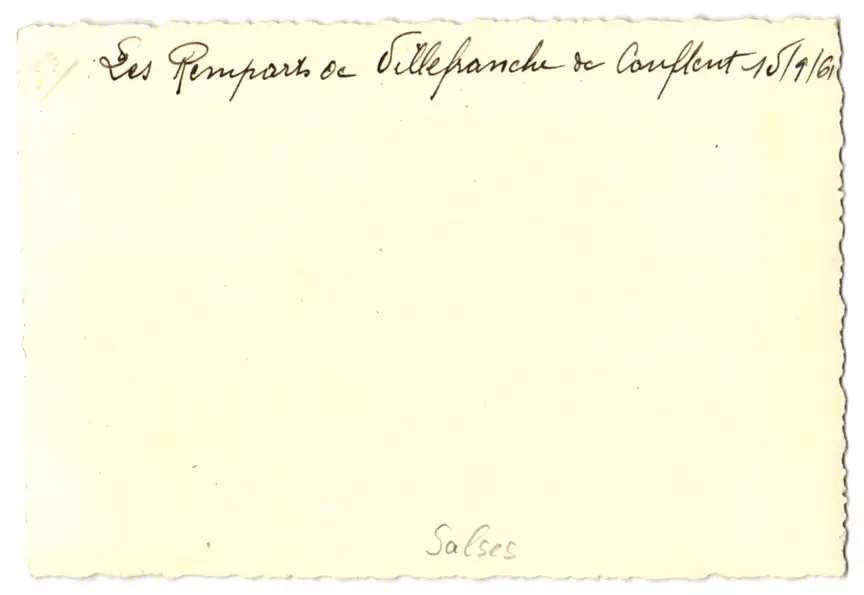 Les Remparts de Villefranche de Conflent 15/9/61
Salses